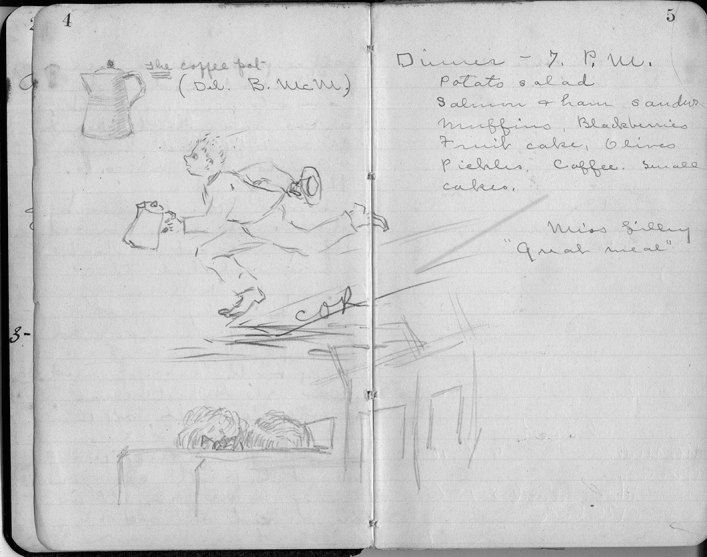 4
The coffee pot
(Del. B. McM.)
COR
3-
5
Dinner - 7. P. M.
Potato salad
Salmon & ham sandw
Muffins, Blackberries
Fruit cake, Olives
Pickles, Coffee. Small
cakes.
Miss Gilley
meal"